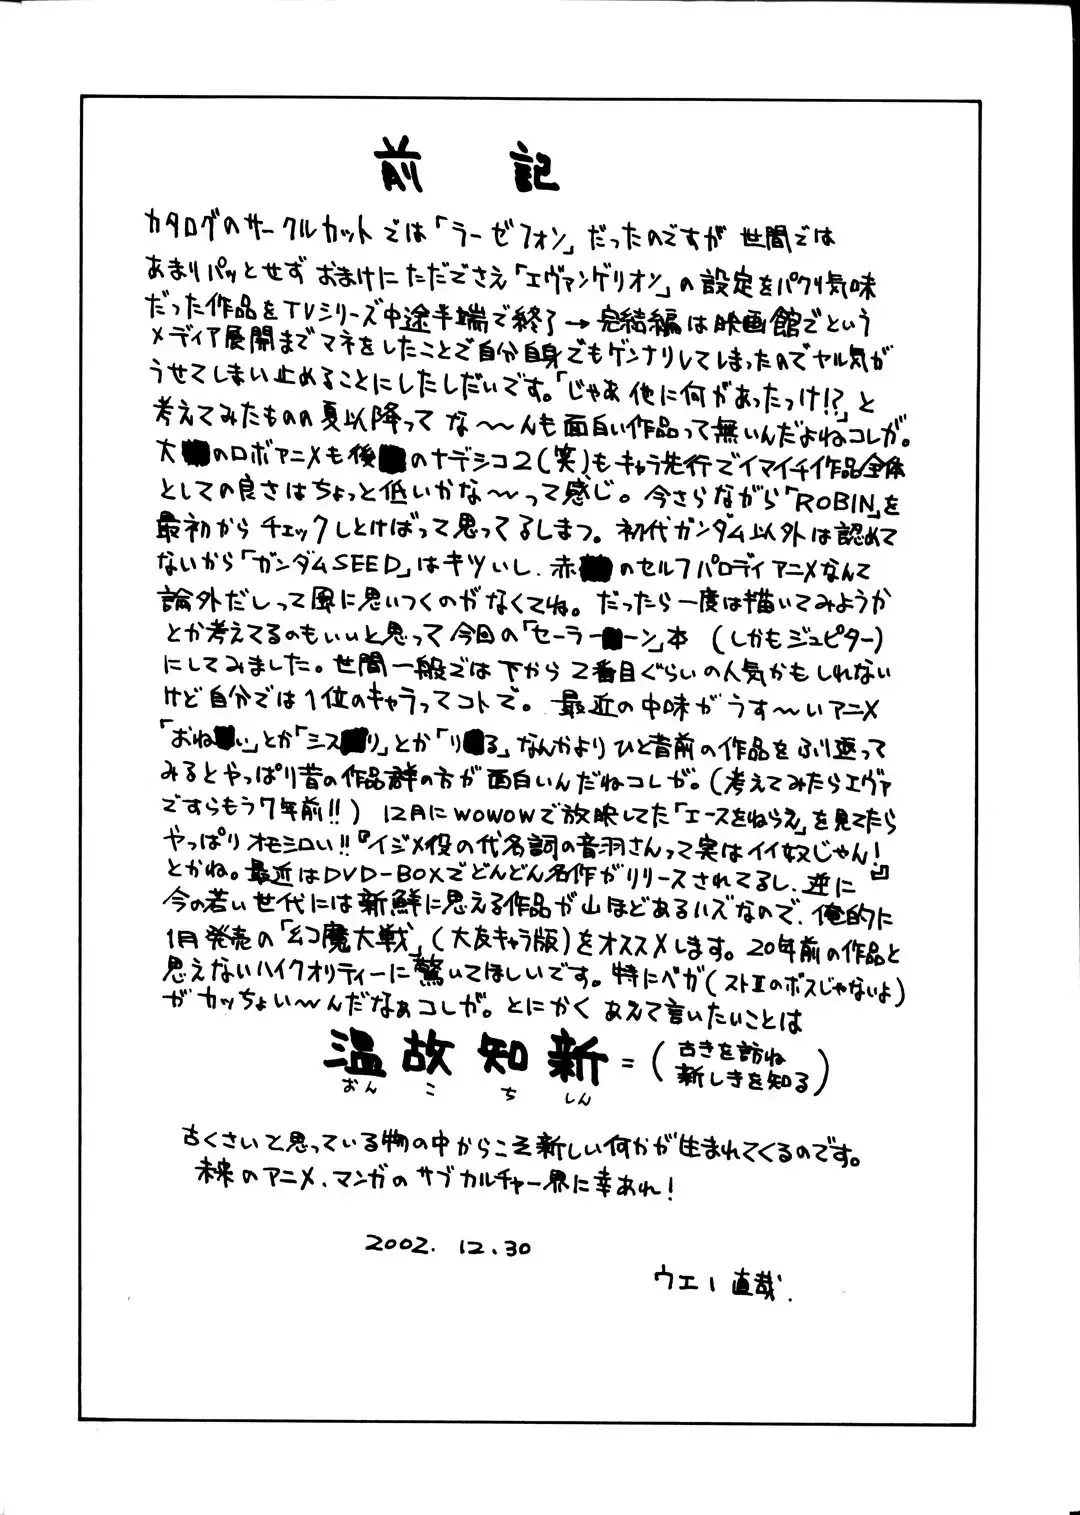 前記
カタログのサークルカットでは「ラーゼフォン」だったのですが世間では
あまりパッとせずおまけにただでさえ「エヴァンゲリオン」の設定をパクリ気味
だった作品をTVシリーズ中途半端で終了→完結編は映画館でという
メディア展開までマネをしたことで自分自身でもゲンナリしてしまったのでヤル気が
うせてしまい止めることにしたしだいです。「じゃあ他に何があったっけ!?」と
考えてみたものの夏以降ってな〜〜んも面白い作品って無いんだよねコレが。
大のロボアニメも後のナデシコ2(笑)もキャラ先行でイマイチ作品全体
としての良さはちょっと低いかな〜〜って感じ。今さらながら「ROBIN」を
最初からチェックしとけばって思ってるしまつ。初代ガンダム以外は認めて
ないから「ガンダムSEED」はキツいし、赤のセルフパロディアニメなんて
論外だしって風に思いつくのがなくてね。だったら一度は描いてみようか
とか考えてるのもいいと思って今回の「セーラーーン」本(しかもジュピター)
にしてみました。世間一般では下から2番目ぐらいの人気かもしれない
けど自分では1位のキャラってコトで。最近の中味がうす〜いアニメ
「おねい」とか「シスリ」とか「りる」なんかよりひと昔前の作品をふり返って
みるとやっぱり昔の作品群の方が面白いんだねコレが。(考えてみたらエヴァ
ですらもう7年前!!)12月にWOWOWで放映してた「エースをねらえ」を見てたら
やっぱりオモシロい!!『イジメ役の代名詞の音羽さんって実はイイ奴じゃん!』
とかね。最近はDVD-BOXでどんどん名作がリリースされてるし、逆に
今の若い世代には新鮮に思える作品が山ほどあるハズなので、俺的に
1月発売の「幻魔大戦」(大友キャラ版)をオススメします。20年前の作品と
思えないハイクオリティーに驚いてほしいです。特にベガ(ストIIのボスじゃないよ)
がカッちょい〜んだなぁコレが。とにかくあえて言いたいことは
温故知新=(古きを訪ね新しきを知る)
おんこちしん
古くさいと思っている物の中からこそ新しい何かが生まれてくるのです。
未来のアニメ、マンガのサブカルチャー界に幸あれ!
2002.12.30
ウエー直哉.